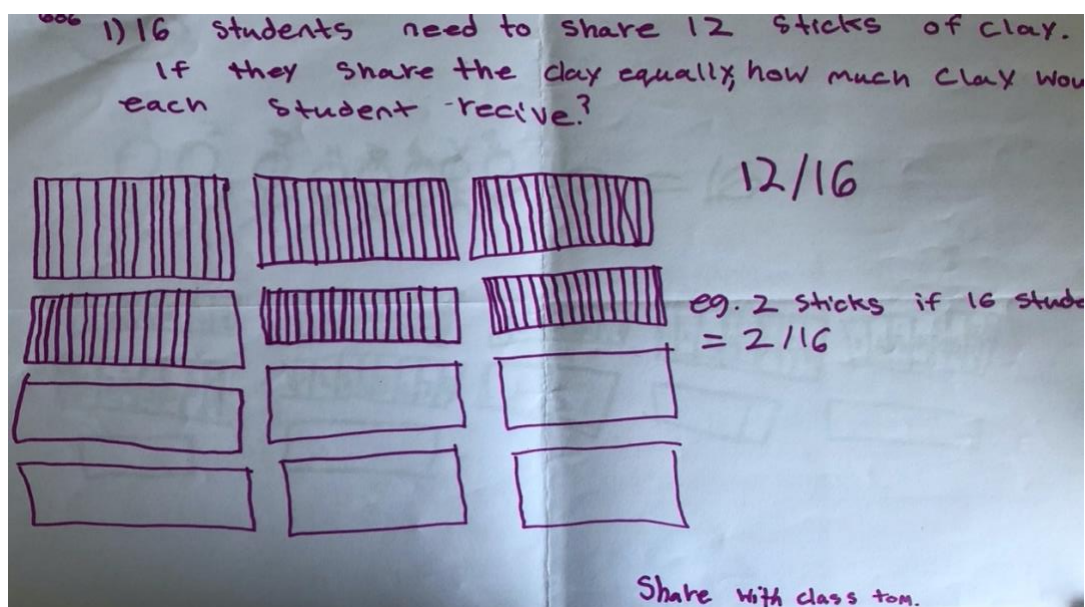 1) 16 students need to share 12 sticks of clay.
If they share the clay equally, how much clay wou
each student recive?
12/16
eg. 2 sticks if 16 stude
= 2/16
Share with class tom.